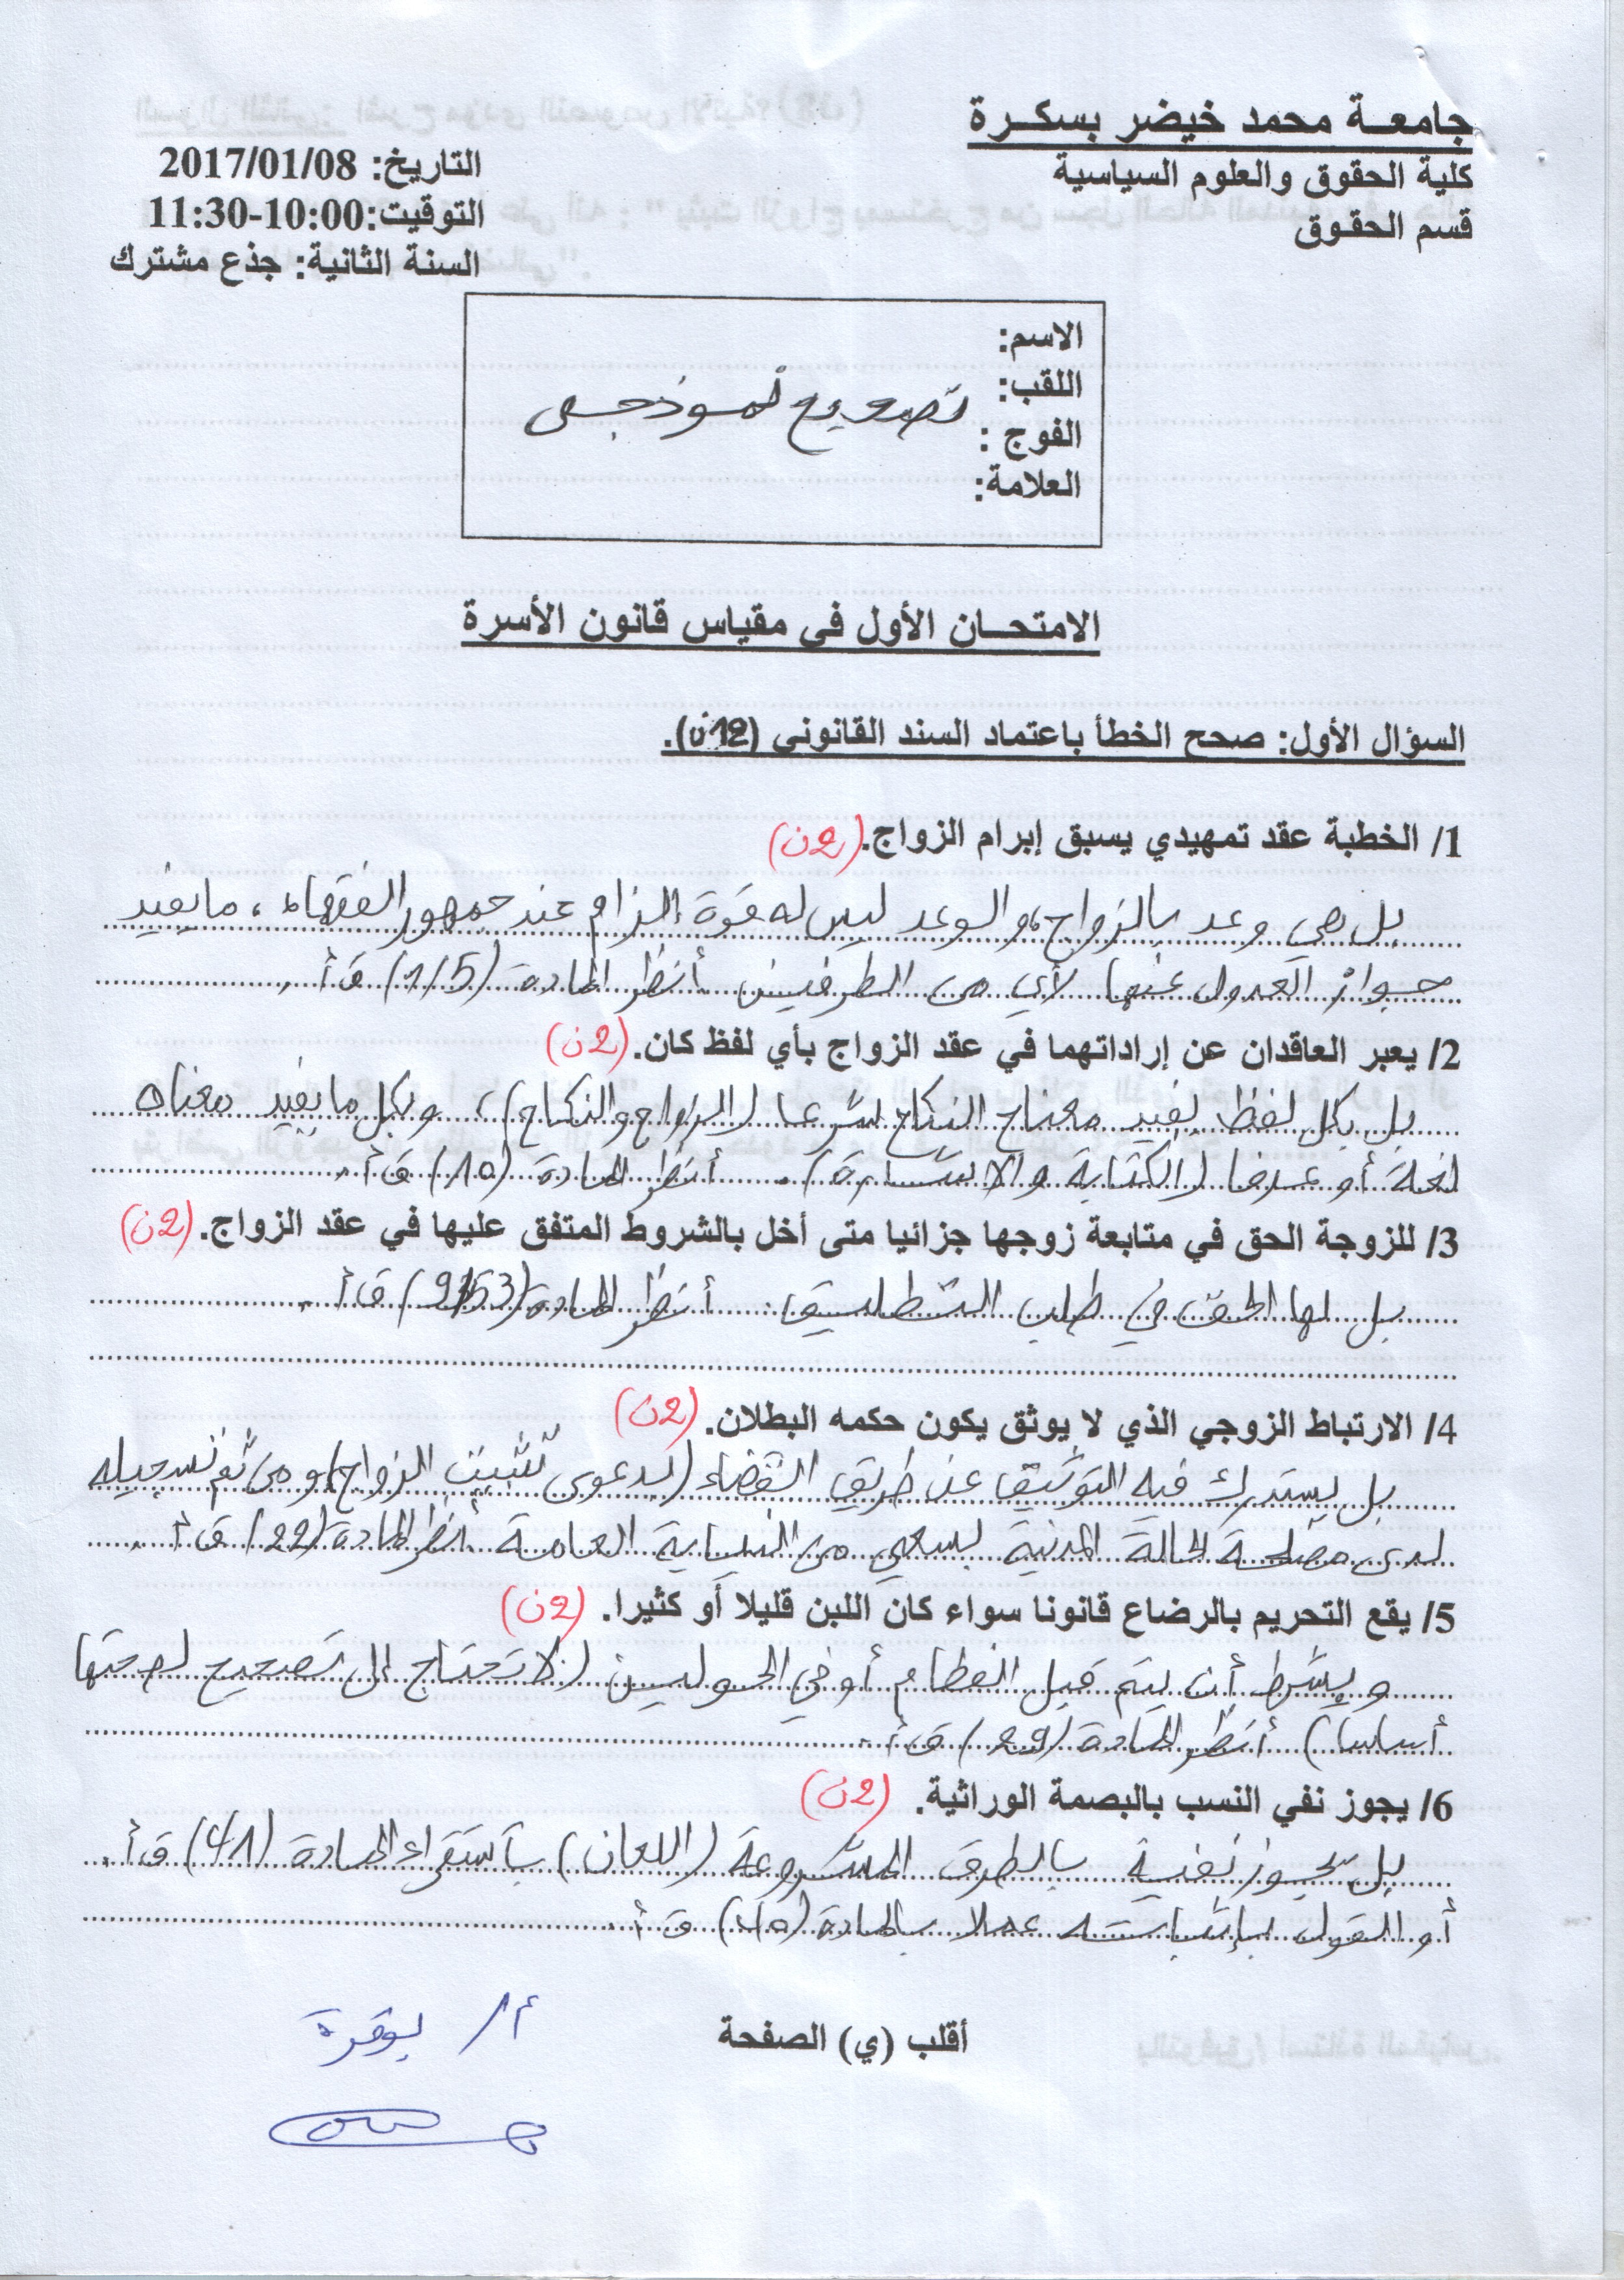 جامعـة محمد خيضر بسكـرة
كلية الحقوق والعلوم السياسية
قسم الحقوق
التاريخ: 2017/01/08
التوقيت:10:00-11:30
السنة الثانية: جذع مشترك
الاسم:
اللقب:
تصحيح نموذجي
الفوج :
العلامة:
الامتحـان الأول في مقياس قانون الأسرة
السؤال الأول: صحح الخطأ باعتماد السند القانوني (12ن).
1/ الخطبة عقد تمهيدي يسبق إبرام الزواج.(2ن)
بل هي وعد بالزواج، والوعد ليس له قوة إلزام عند جمهور الفقهاء، ما يفيد
جواز العدول عنها لأي من الطرفين أنظر المادة (1/5) ق أ.
2/ يعبر العاقدان عن إراداتهما في عقد الزواج بأي لفظ كان.(2ن)
بل بكل لفظ يفيد معناح النكاح شرعا (الزواج والنكاح)، وبكل ما يفيد معناه
لغة أو عرفا (الكتابة والإشارة). أنظر المادة (10) ق أ.
3/ للزوجة الحق في متابعة زوجها جزائيا متى أخل بالشروط المتفق عليها في عقد الزواج.(2ن)
بل لها الحق في طلب التطليق. أنظر المادة (9/53) ق أ.
4/ الارتباط الزوجي الذي لا يوثق يكون حكمه البطلان.(2ن)
بل يستدرك فيه التوثيق عن طريق القضاء (بدعوى تثبيت الزواج) ومن ثم تسجيله
لدى مصلحة الحالة المدنية بسعي من النيابة العامة أنظر المادة (22) ق أ.
5/ يقع التحريم بالرضاع قانونا سواء كان اللبن قليلا أو كثيرا.(2ن)
ويشترط أن يتم قبل الفطام أو في الحولين (لا تحتاج إلى تصحيح لصحتها
أساسا) أنظر المادة (29) ق أ.
6/ يجوز نفي النسب بالبصمة الوراثية.(2ن)
بل يجوز نفيه بالطرق المشروعة (اللعان) باستقراء المادة (41) ق أ.
أو القول بإثباته عملا بالمادة (40) ق أ.
أقلب (ي) الصفحة
أ/ بوقرة